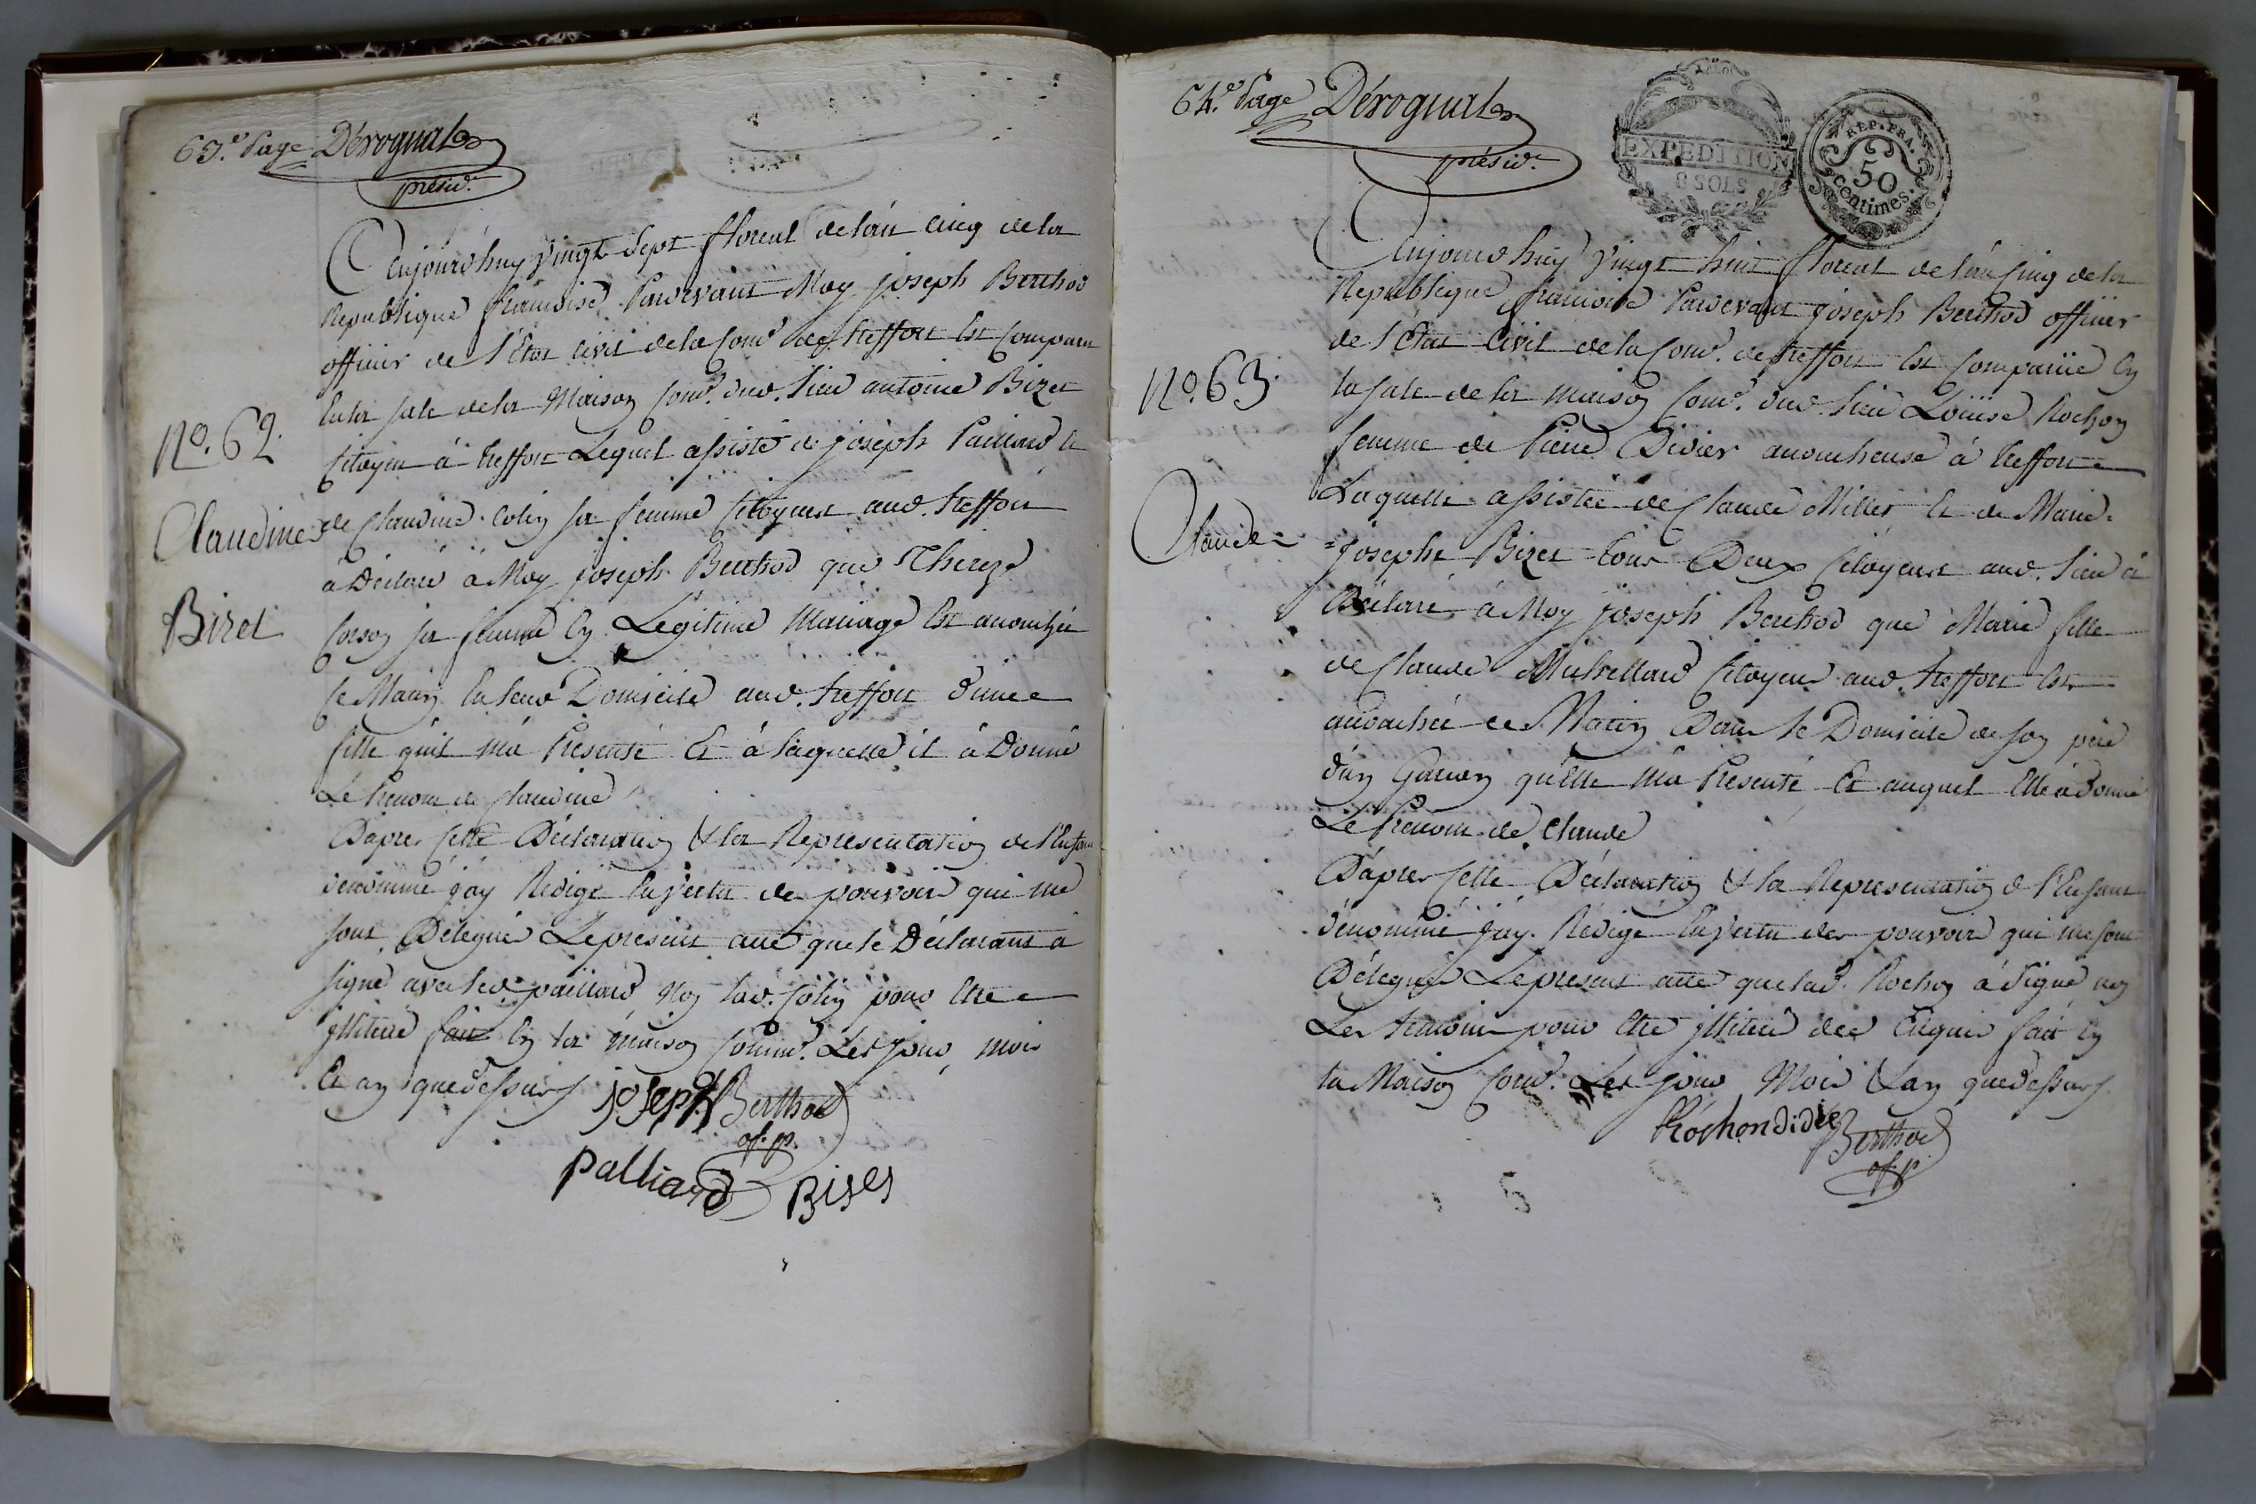 63.e Page Dérognat
présid.
Aujourd'huy Vingt Sept floreal de l'an Cinq de la
Republique francoise Pardevant Moy joseph Berthod
officier de l'Etat civil de la Com.e de treffort Est Comparu
En la sale de la Maison Com.e dud. lieu antoine Bizet
Citoyen à treffort Lequel assisté de joseph Paillard Et
de Claudine Colin sa femme Citoyens aud. treffort
à Déclaré à Moy joseph Berthod que Thereze
Corson sa femme En Légitime Mariage Est accouchée
Ce Matin En leur Domicile aud. treffort d'une
fille qu'il m'a Présenté Et à laquelle il à Donné
Le Prenom de Claudine
No. 62.
Claudine
Bizet
D'apres Cette Déclaration & la Représentation de l'Enfant
denommé j'ay Rédigé En Vertu des pouvoirs qui me
sont Délégué Le présent acte que le Déclarant à
signé avec led. paillard Non lad. Colin pour Etre
illiterée fait En la maison Comm.e Les jour, mois
Et an que dessus
joseph Berthod
of. p.
palliard Bises
64.e Page Dérognat
présid.
EXPEDITION
8 SOLS
REP. FRA.
50
centimes.
Aujourd'huy Vingt huit floreal de l'an Cinq de la
Republique francoise Pardevant joseph Berthod officier
de l'Etat Civil de la Com.e de treffort Est Comparüe En
la sale de la maison Com.e dud. lieu Loüise Rochon
femme de Pierre Didier accoucheuse à treffort
Laquelle assistée de Claude Millet Et de Marie
=Josephe Bizet tous Deux Citoyens aud. lieu à
Déclaré à Moy joseph Berthod que Marie fille
de Claude Citoyen aud. treffort Est
accouchée ce Matin Dans le Domicile de son pere
d'un Garcon qu'Elle m'a Présenté Et auquel Elle à Donné
Le Prenom de Claude
No. 63.
Claude
D'apres Cette Déclaration & la Representation d l'Enfant
dénommé j'ay Rédigé En Vertu des pouvoirs qui me sont
Délégués Le present acte que lad. Rochon à Signé non
Les temoins pour Etre illiteré de ce Enquis fait En
la Maison Com.e Les jour Mois & an que dessus
Rochon didie Berthod
of. p.